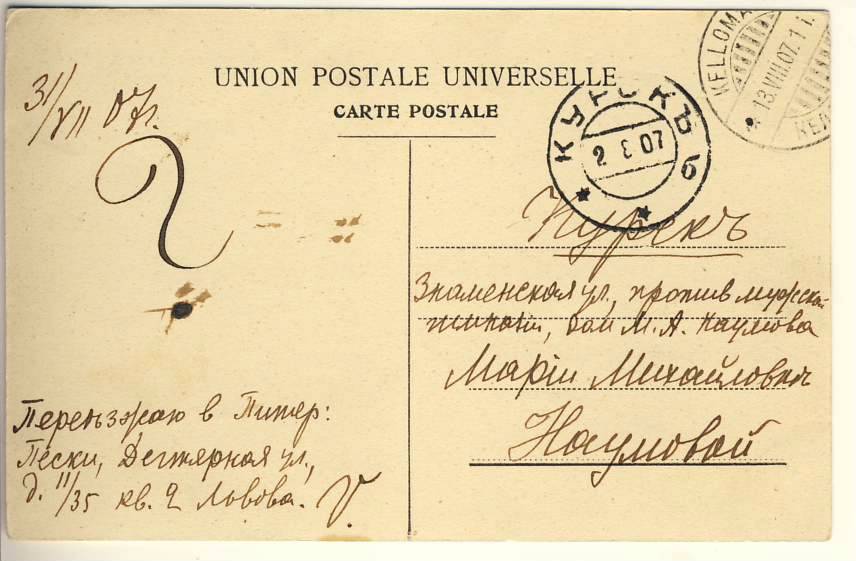 UNION POSTALE UNIVERSELLE
CARTE POSTALE
31/VII 07г.
?
КУРСКЪ
2 8 07
б
KELLOMÄ
13.VIII.07. 1 i.
КЕЛ
Курскъ
Знаменская ул., против мужской
гимназіи, дом М. А. Наумова
Маріи Михайловне
Наумовой
Переѣзжаю в Питер:
Пески, Дегтярная ул.,
д. 11/35 кв. 2 Львова. V.